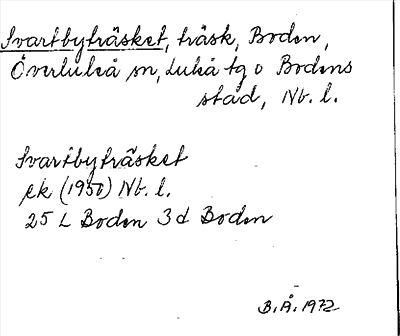 Svartbyträsket, träsk, Boden,
Överluleå sn, Luleå tg o Bodens
stad, Nb. l.
Svartbyträsket
ek (1950) Nb. l.
25 L Boden 3 d Boden
B. Å. 1972